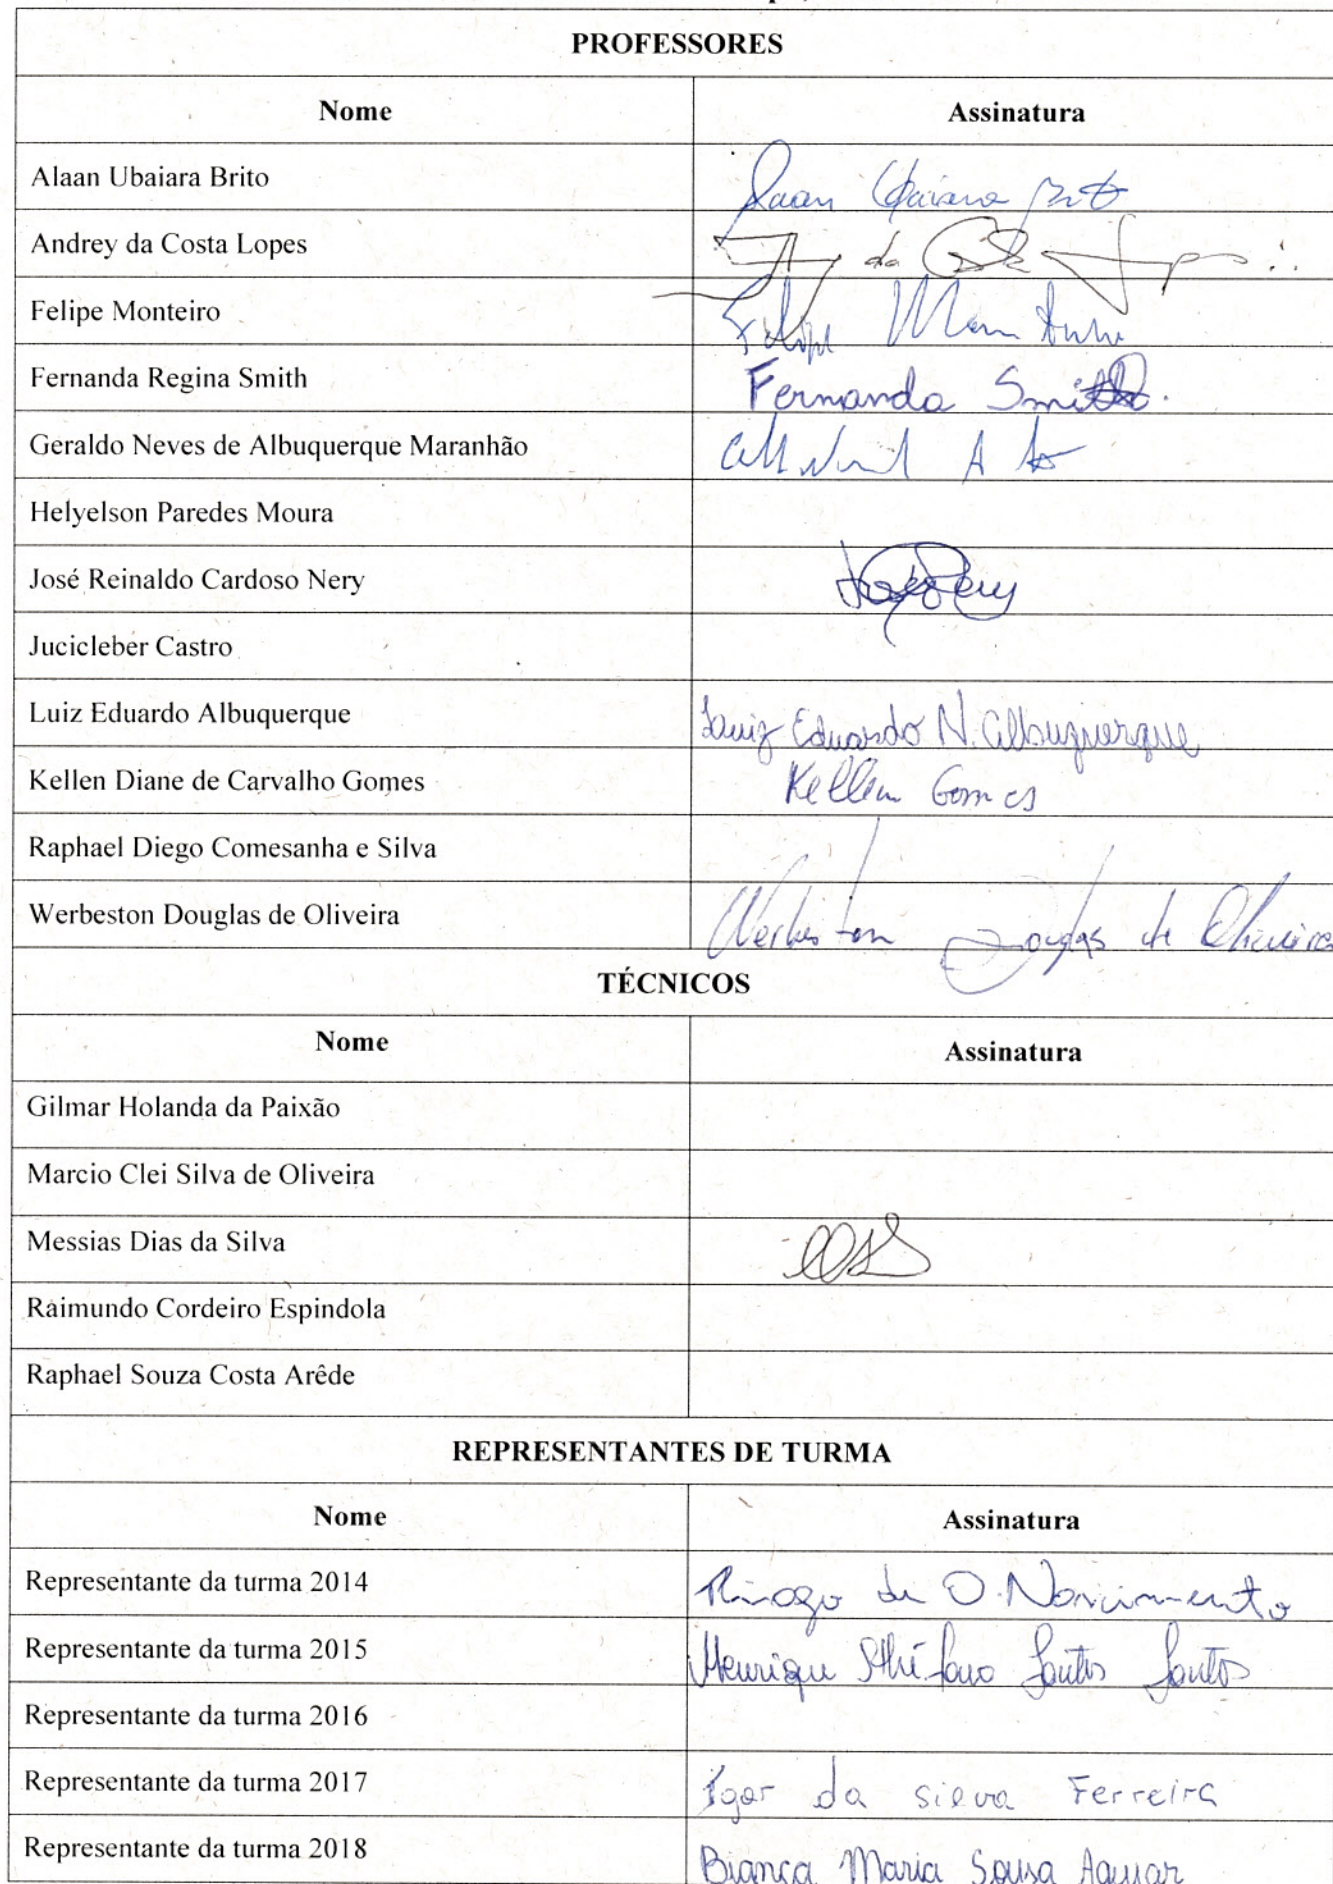 PROFESSORES
Nome Assinatura
Alaan Ubaiara Brito Alaan Ubaiara Brito
Andrey da Costa Lopes da Costa
Felipe Monteiro Felipe Monteiro
Fernanda Regina Smith Fernanda Smith
Geraldo Neves de Albuquerque Maranhão
Helyelson Paredes Moura
José Reinaldo Cardoso Nery Nery
Jucicleber Castro
Luiz Eduardo Albuquerque Luiz Eduardo N. Albuquerque
Kellen Diane de Carvalho Gomes Kellen Gomes
Raphael Diego Comesanha e Silva
Werbeston Douglas de Oliveira Werbeston Douglas de Oliveira
TÉCNICOS
Nome Assinatura
Gilmar Holanda da Paixão
Marcio Clei Silva de Oliveira
Messias Dias da Silva
Raimundo Cordeiro Espindola
Raphael Souza Costa Arêde
REPRESENTANTES DE TURMA
Nome Assinatura
Representante da turma 2014 Thiago de O. Nascimento
Representante da turma 2015 Henrique Sthéfano Santos Santos
Representante da turma 2016
Representante da turma 2017 Igor da Silva Ferreira
Representante da turma 2018 Bianca Maria Sousa Aguiar